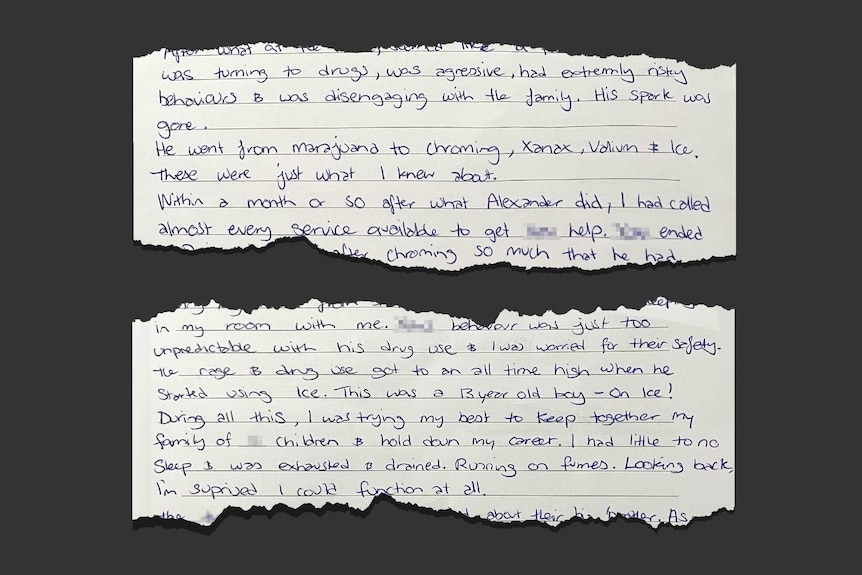 After what at
was turning to drugs, was agressive, had extremly risky
behaviours & was disengaging with the family. His spark was
gone.
He went from marajuana to chroming, Xanax, Valium & Ice.
These were just what I knew about.
Within a month or so after what Alexander did, I had called
almost every service available to get help. ended
after chroming so much that he had
in my room with me. behaviour was just too
unpredictable with his drug use & I was worried for their safety.
The rage & drug use got to an all time high when he
started using Ice. This was a 13 year old boy - On Ice!
During all this, I was trying my best to keep together my
family of children & hold down my career. I had little to no
Sleep & was exhausted & drained. Running on fumes. Looking back,
I'm suprised I could function at all.
the about their big brother. As